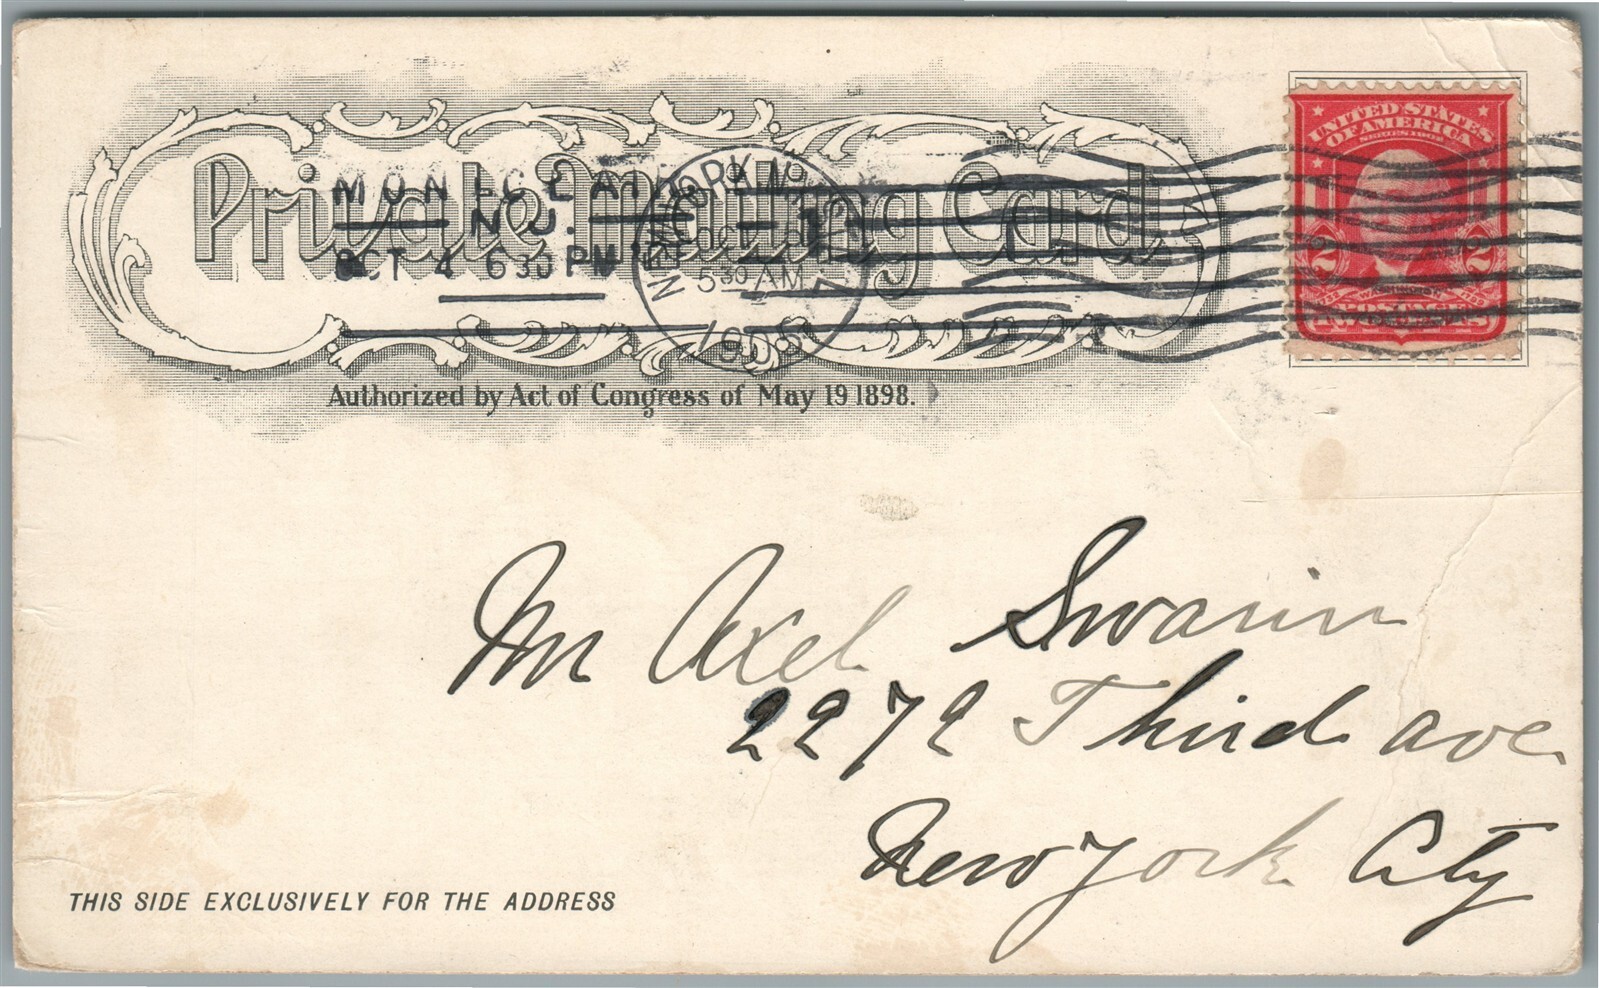 Private Mailing Card.
Authorized by Act of Congress of May 19 1898.
MONTCLAIR
N. J.
OCT 4 630 PM
NEW YORK, N.Y.
OCT
530 AM
1905
UNITED STATES
OF AMERICA
SERIES 1902
2 2
1732 WASHINGTON 1799
POSTAGE
TWO CENTS
Mr Axel Swann
2272 Third ave.
New York City
THIS SIDE EXCLUSIVELY FOR THE ADDRESS